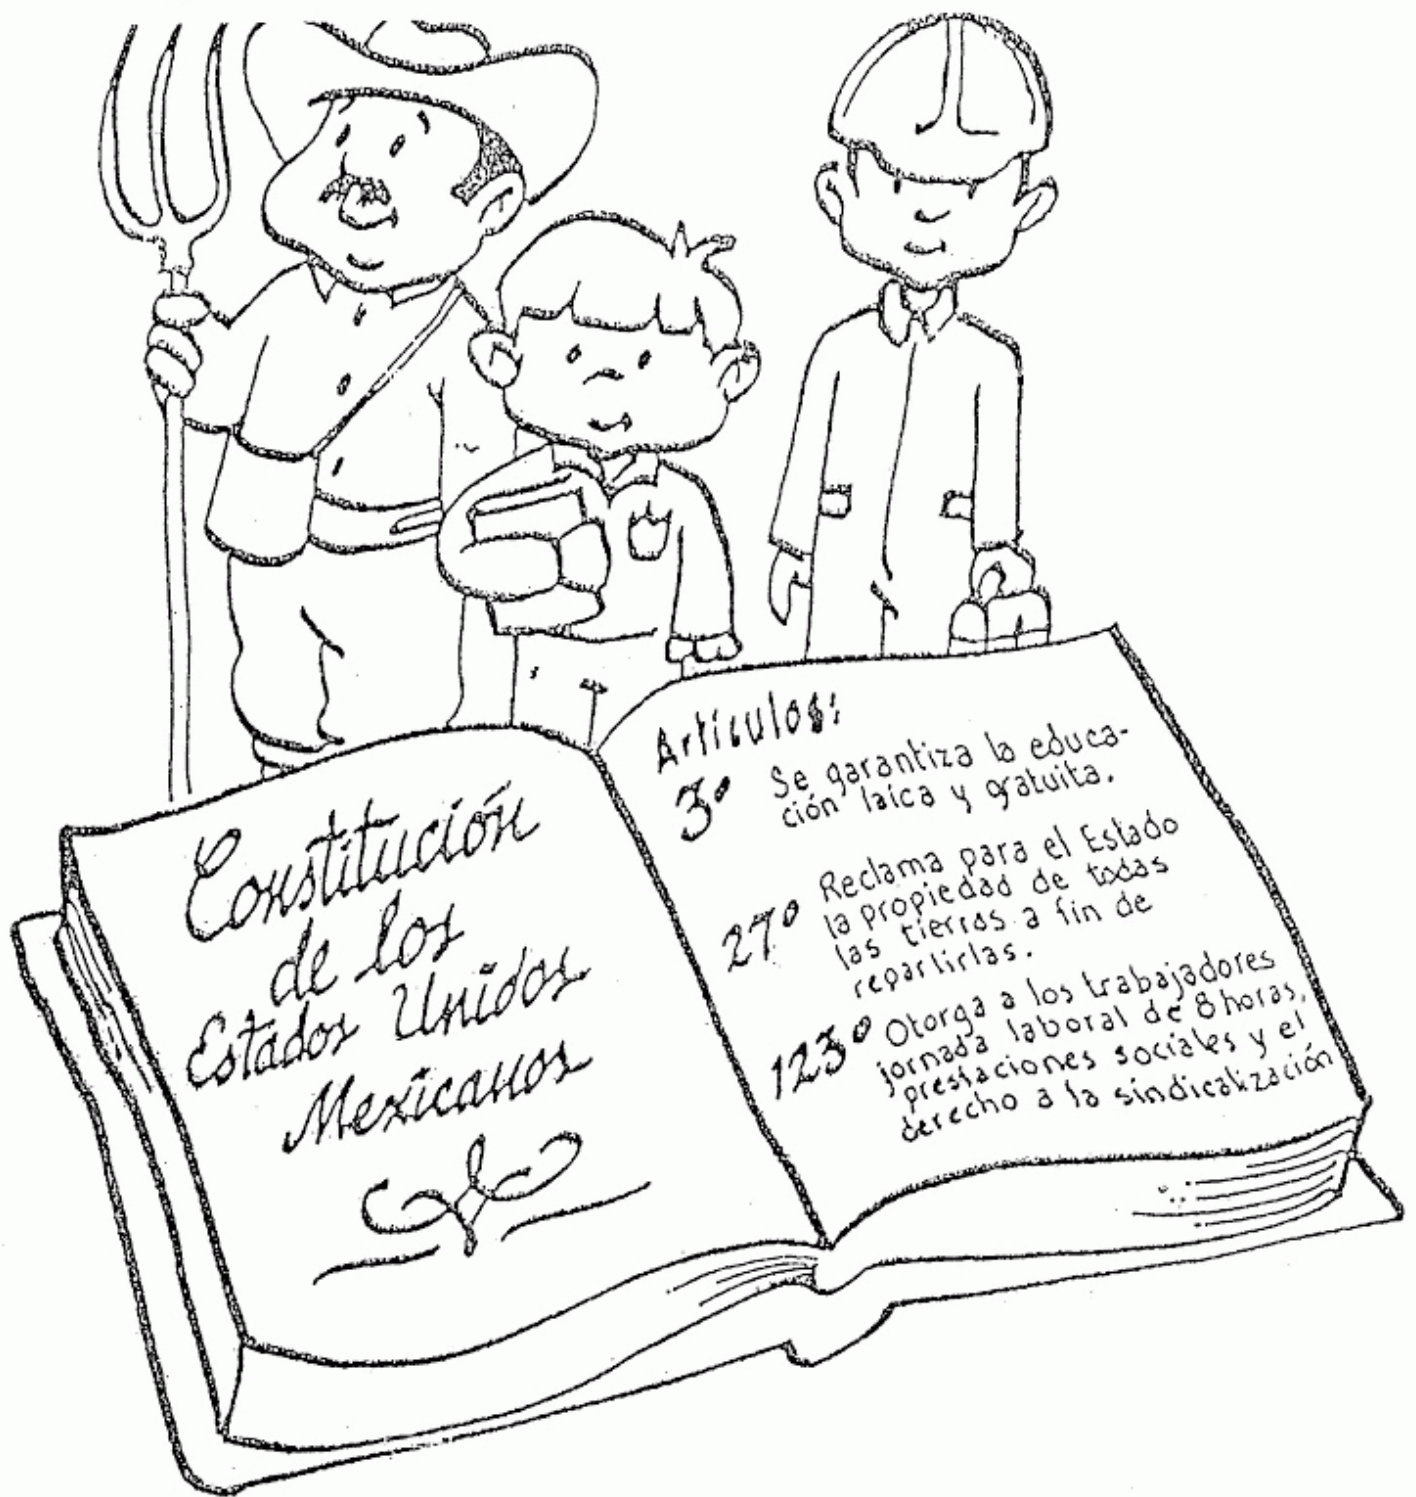 Constitución
de los
Estados Unidos
Mexicanos
Artículos:
3º Se garantiza la educa-
ción laica y gratuita.
27º Reclama para el Estado
la propiedad de todas
las tierras a fin de
repartirlas.
123º Otorga a los trabajadores
jornada laboral de 8 horas,
prestaciones sociales y el
derecho a la sindicalización